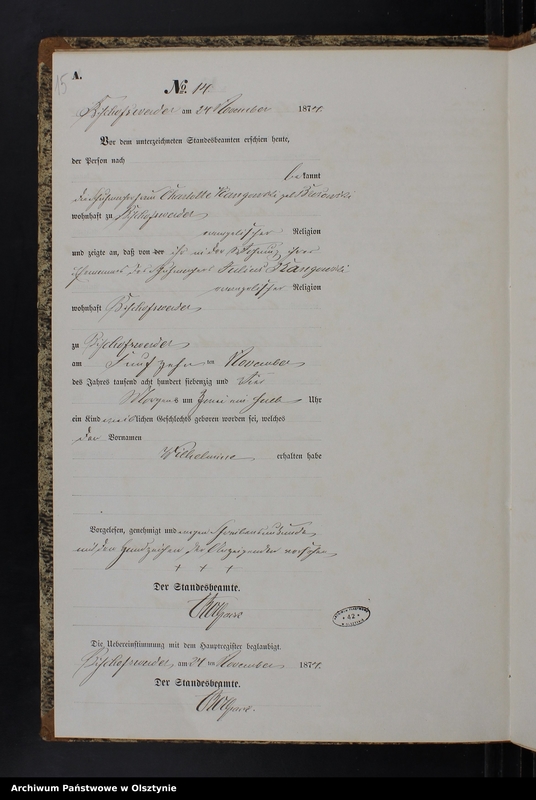 15
A.
No. 14
Bischofswerder am 24 November 1874.
Vor dem unterzeichneten Standesbeamten erschien heute,
der Person nach
bekannt
Charlotte geb
wohnhaft zu Bischofswerder
evangelischer Religion
und zeigte an, daß von der ihr in der Wohnung ihres
Ehemannes des Julius
evangelischer Religion
wohnhaft Bischofswerder
zu Bischofswerder
am fünfzehn ten November
des Jahres tausend acht hundert siebenzig und vier
Morgens um ein halb Uhr
ein Kind weiblichen Geschlechts geboren worden sei, welches
den Vornamen
Wilhelmine erhalten habe
Vorgelesen, genehmigt und wegen Schreibensunkunde
mit den Handzeichen der Anzeigenden versehen
+ + +
Der Standesbeamte.
Die Uebereinstimmung mit dem Hauptregister beglaubigt.
Bischofswerder, am 24 ten November 1874.
Der Standesbeamte.
* 42 *
Archiwum Państwowe w Olsztynie